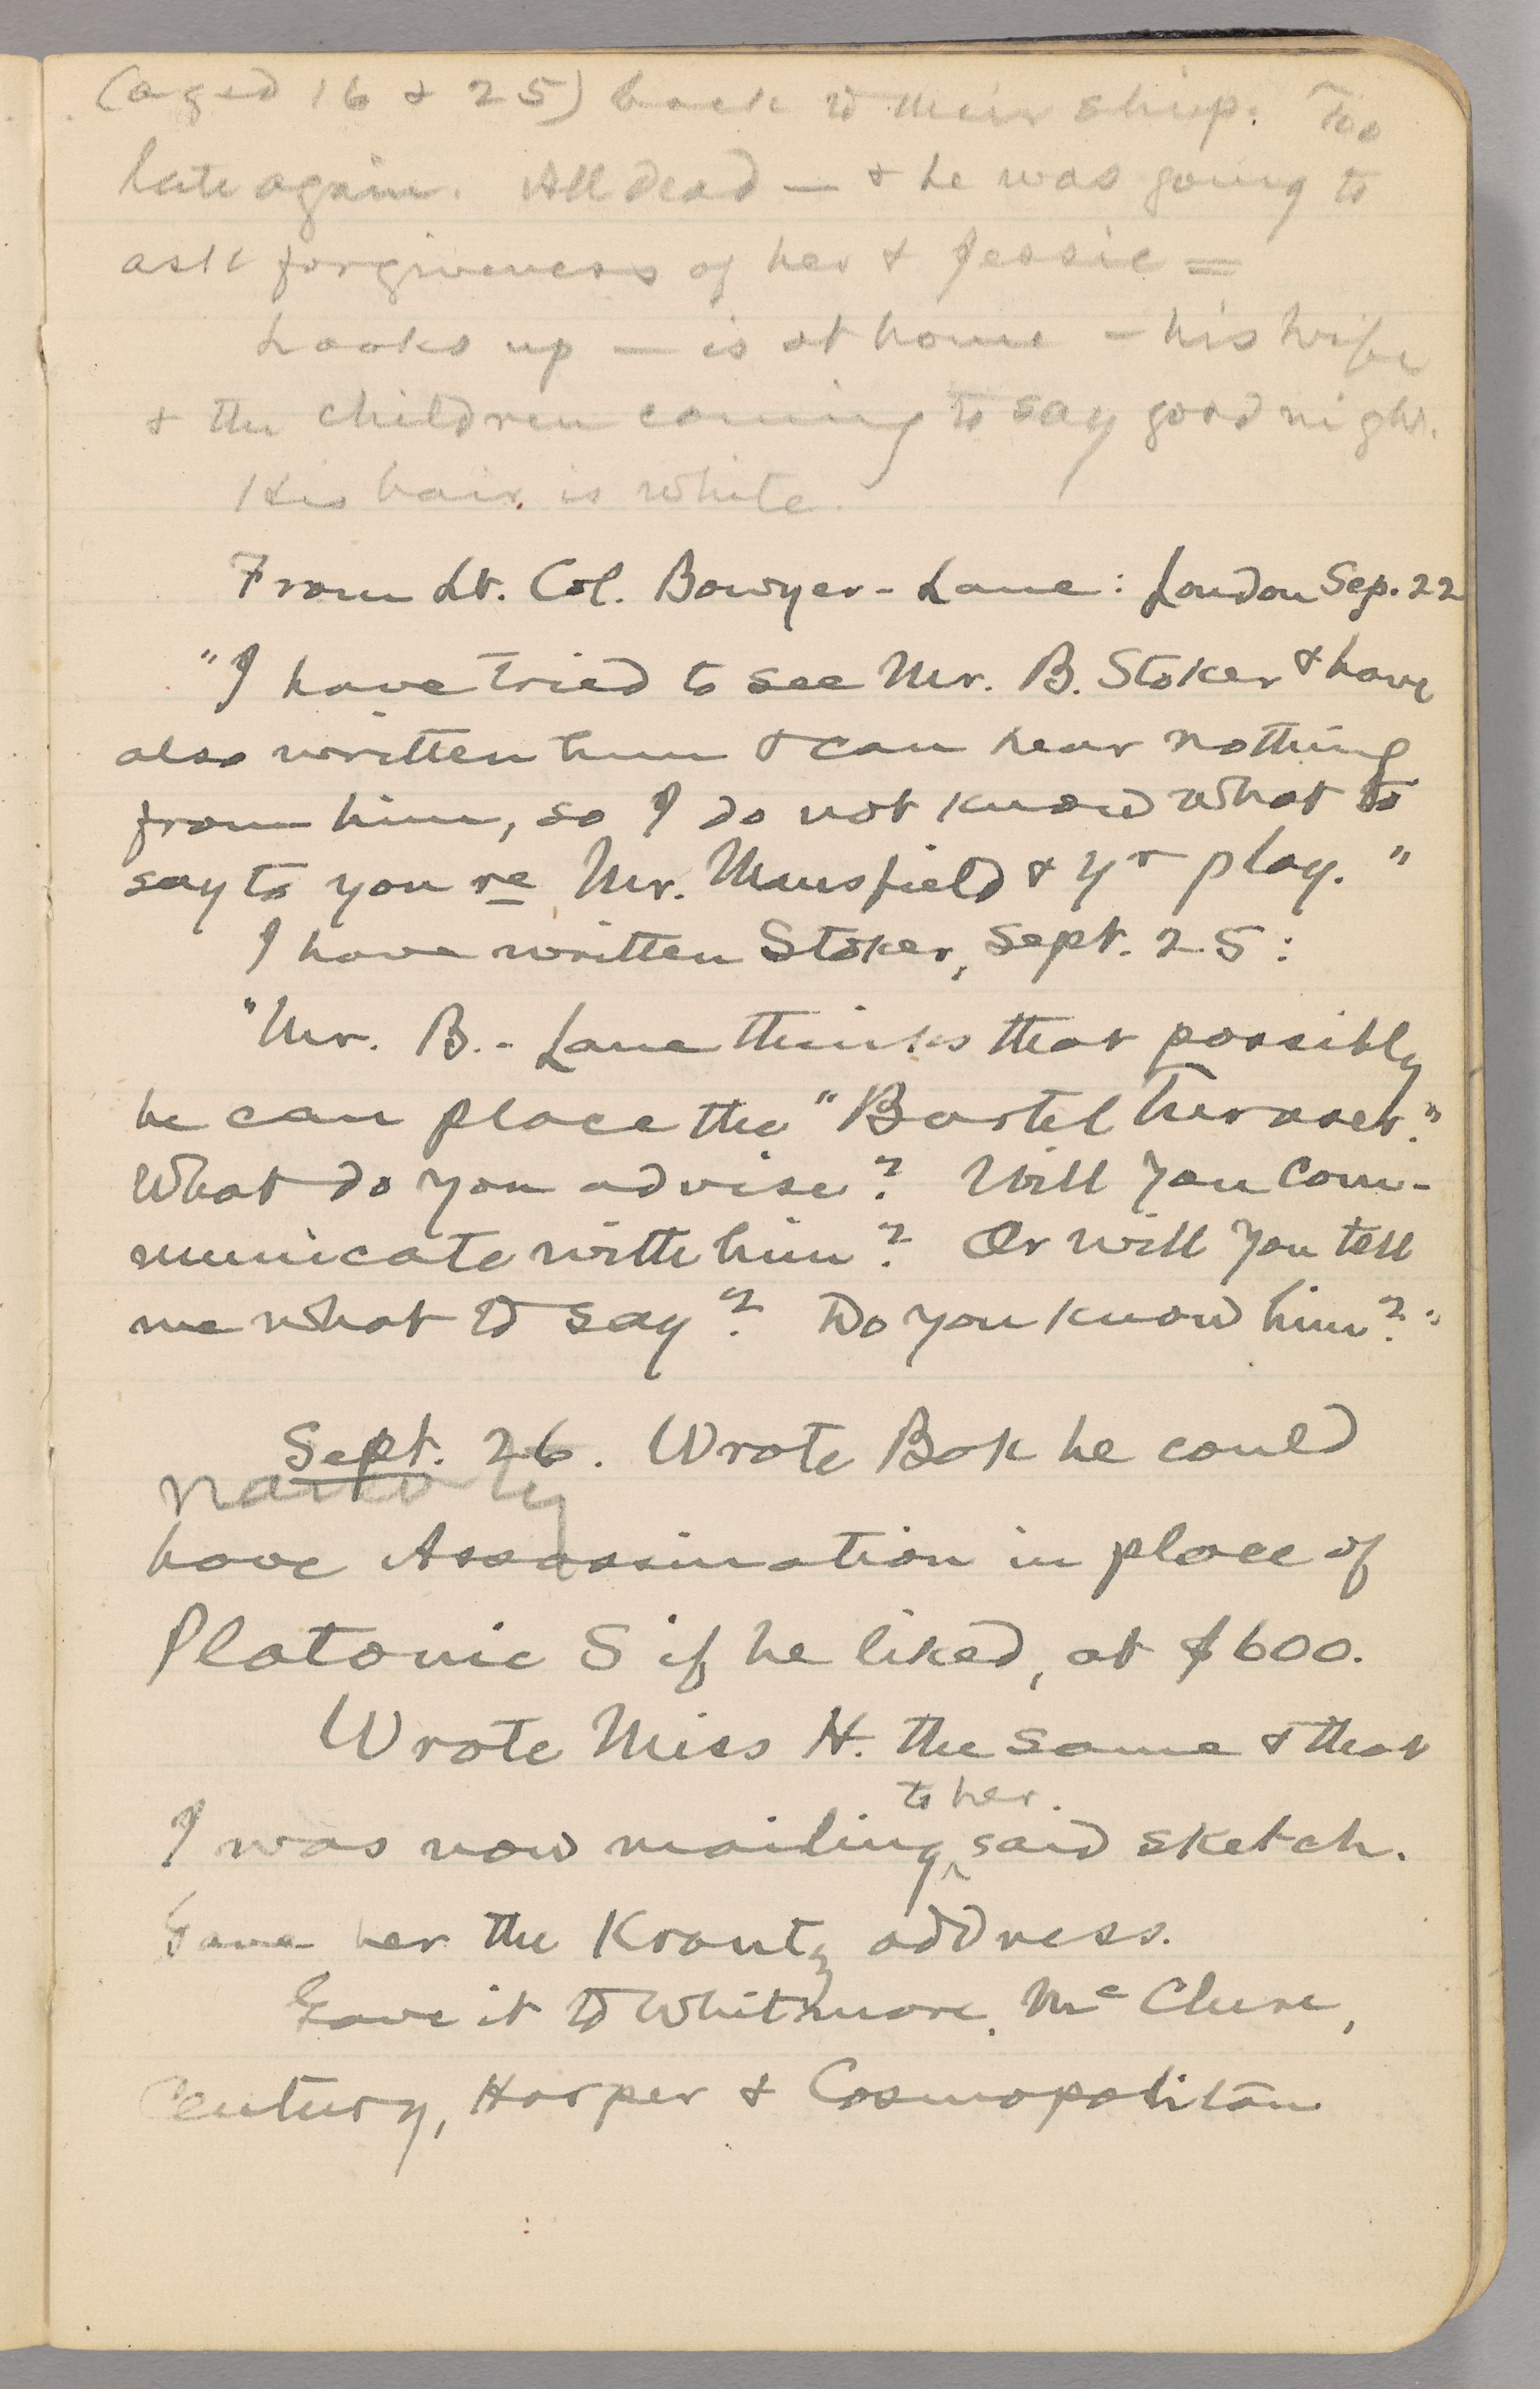 (aged 16 & 25) back to their ship. Too
late again. All dead — & he was going to
ask forgiveness of her & Jessie =
Looks up — is at home — his wife
& the children coming to say good night.
His hair is white.
From Lt. Col. Bowyer-Lane: London Sep. 22
"I have tried to see Mr. B. Stoker & have
also written him & can hear nothing
from him, so I do not know what to
say to you re Mr. Mansfield & yr play."
I have written Stoker, Sept. 25:
"Mr. B.-Lane thinks that possibly
he can place the "Bartel Turaser."
What do you advise? Will you com-
municate with him? Or will you tell
me what to say? Do you know him?"
Sept. 26. Wrote Bok he could
have Assassination in place of
Platonic S if he liked, at $600.
Wrote Miss H. the same & that
to her.
I was now mailing ^ said sketch.
Gave her the Krantz address.
Gave it to Whitmore, McClure,
Century, Harper & Cosmopolitan